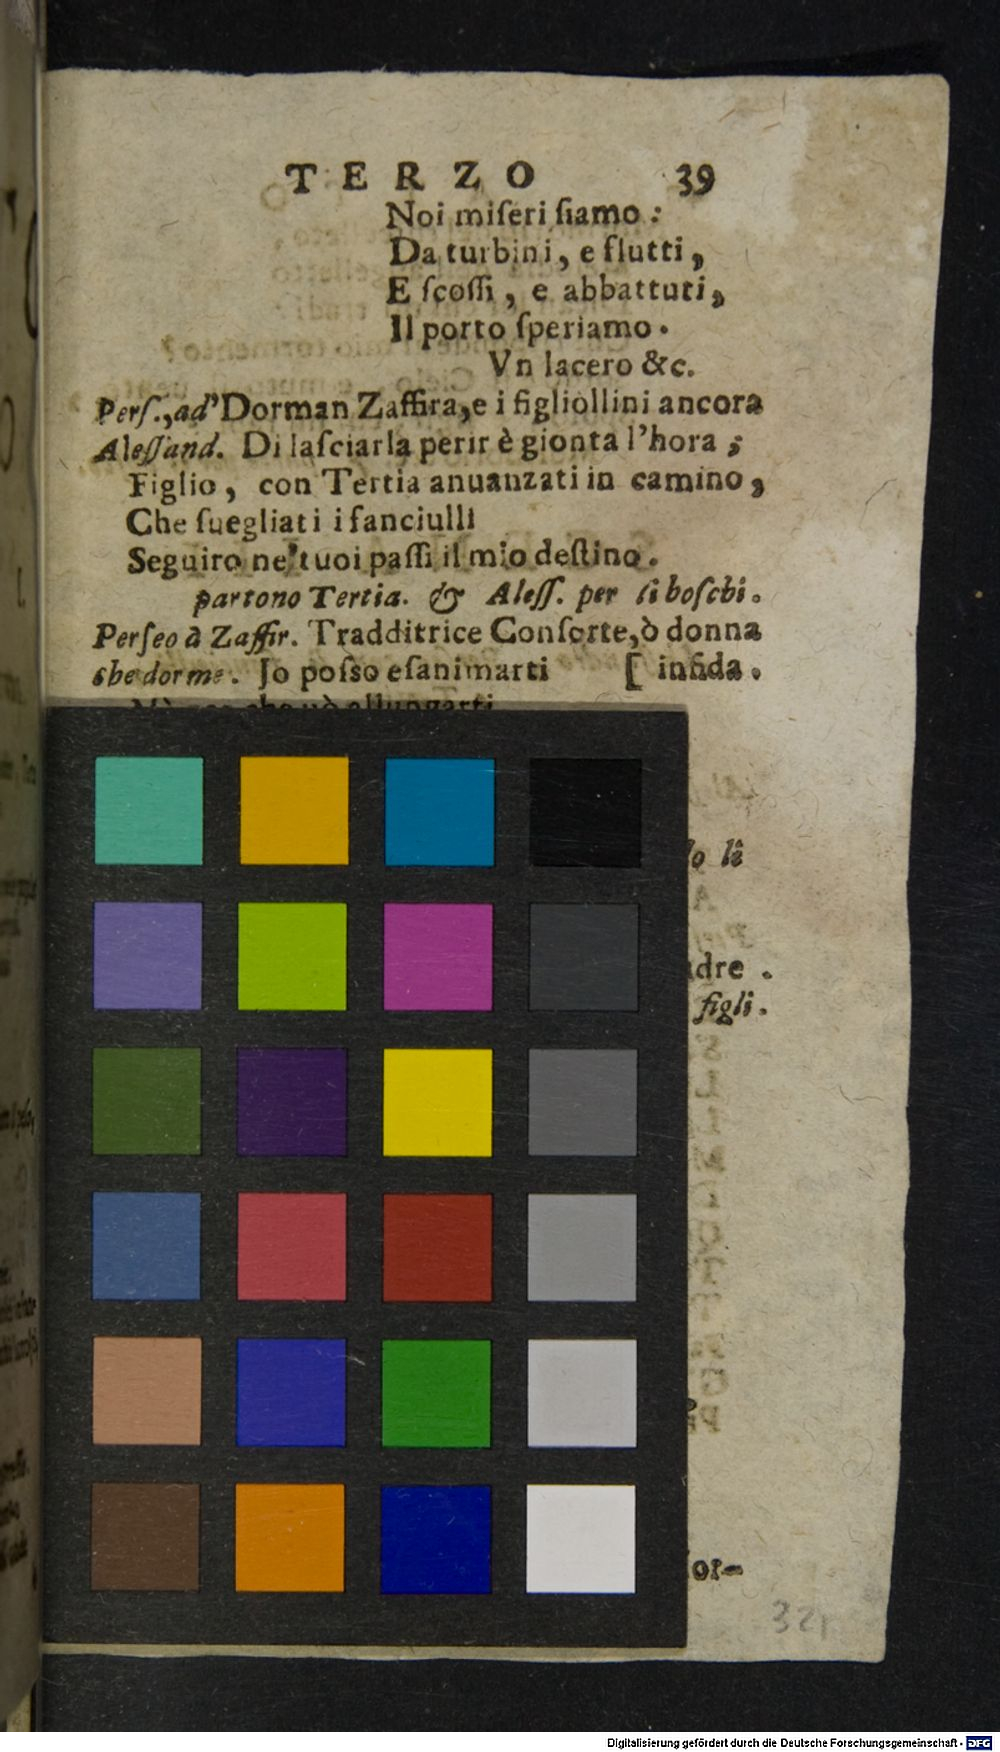 TERZO 39
Noi miſeri ſiamo :
Da turbini, e flutti,
E ſcoſſi, e abbattuti,
Il porto ſperiamo.
Vn lacero &c.
Perſ., ad' Dorman Zaffira, e i figliollini ancora
Aleſſand. Di laſciarla perir è gionta l'hora ;
Figlio, con Tertia anuanzati in camino,
Che ſuegliati i fanciulli
Seguiro ne' tuoi paſſi il mio deſtino.
partono Tertia. & Aleſſ. per li boſchi.
Perſeo à Zaffir. Tradditrice Conſorte, ò donna
che dorme. Io poſso eſanimarti [ infida.
allungarti
lo li
adre .
figli.
321
Digitalisierung gefördert durch die Deutsche Forschungsgemeinschaft - DFG